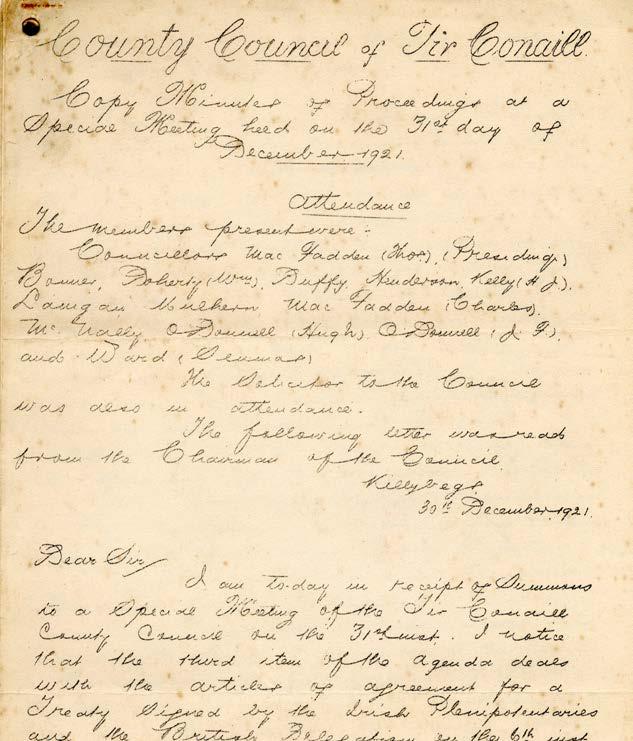 County Council of Tir Conaill.
Copy Minutes of Proceedings at a
Special Meeting held on the 31st day of
December 1921.
Attendance
The members present were:
Councillors Mac Fadden (Thos), (Presiding)
Bonner, Doherty (Wm), Duffy, Henderson, Kelly (H J),
Langan Mulhern Mac Fadden (Charles),
Mc Nally, O'Donnell (Hugh), O'Donnell (J. F),
and Ward (Seumas)
The Solicitor to the Council
was also in attendance.
The following letter was read
from the Chairman of the Council.
Killybegs
30th December, 1921.
Dear Sir/
I am to-day in receipt of Summons
to a Special Meeting of the Tir Conaill
County Council on the 31st inst. I notice
that the third item of the agenda deals
with the articles of agreement for a
Treaty signed by the Irish Plenipotentaries
and the British Delegation on the 6th inst